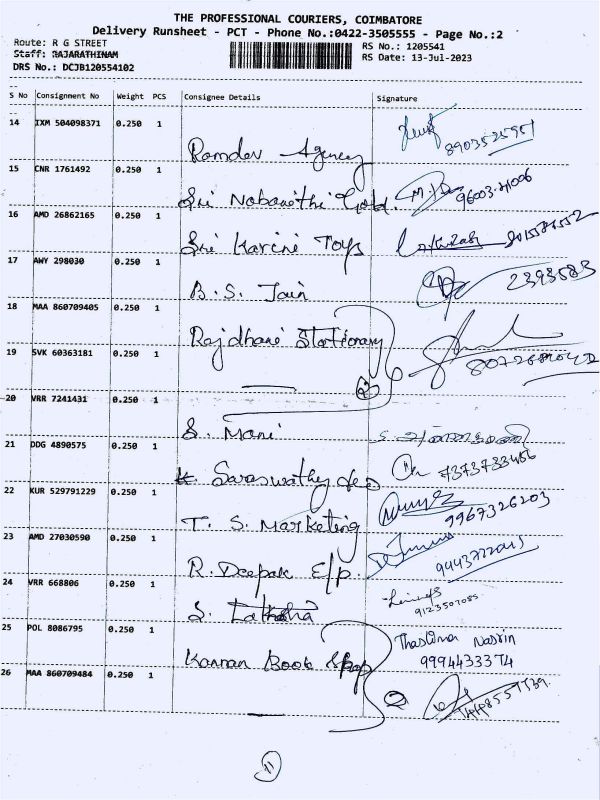 THE PROFESSIONAL COURIERS, COIMBATORE
Delivery Runsheet - PCT - Phone No.:0422-3505555 - Page No.:2
Route: R G STREET
RS No.: 1205541
Staff: RAJARATHINAM
RS Date: 13-Jul-2023
DRS No.: DCJB120554102
S No Consignment No Weight PCS Consignee Details Signature
14 IXM 504098371 0.250 1
Ramdev Agency
15 CNR 1761492 0.250 1
Sri Nabanithi Gold.
16 AMD 26862165 0.250 1
Sri Karini Toys
17 AWY 298030 0.250 1
B. S. Jain 2393583
18 MAA 860709405 0.250 1
Rajdhani Stationary
19 SVK 60363181 0.250 1
2
20 VRR 7241431 0.250 1
S. Mani
21 DDG 4890575 0.250 1
K. Saraswathy 7373733456
22 KUR 529791229 0.250 1
T. S. Marketing 9967326203
23 AMD 27030590 0.250 1
R. Deepak E/p.
24 VRR 668806 0.250 1
S. 9123507085
25 POL 8086795 0.250 1
Thaslima Nasrin
Kannan Book Shop 9994433374
26 MAA 860709484 0.250 1
2
11